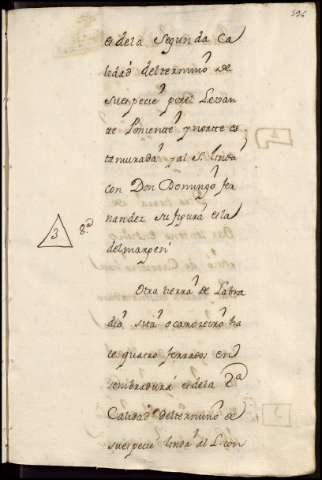 es dela Segunda Ca
lidad deltermino de
su espeçie por el Levan
te Poniente y norte es
ta murada y al S. linda
con Don Domingo fer
nandez su figura es la
3 2.ª
del marxen
Otra tierra de Labra
dia sita ha
ze quatro ferrados en
sembradura es dela 2ª
Calidad deltermino de
su espeçie linda al L. con